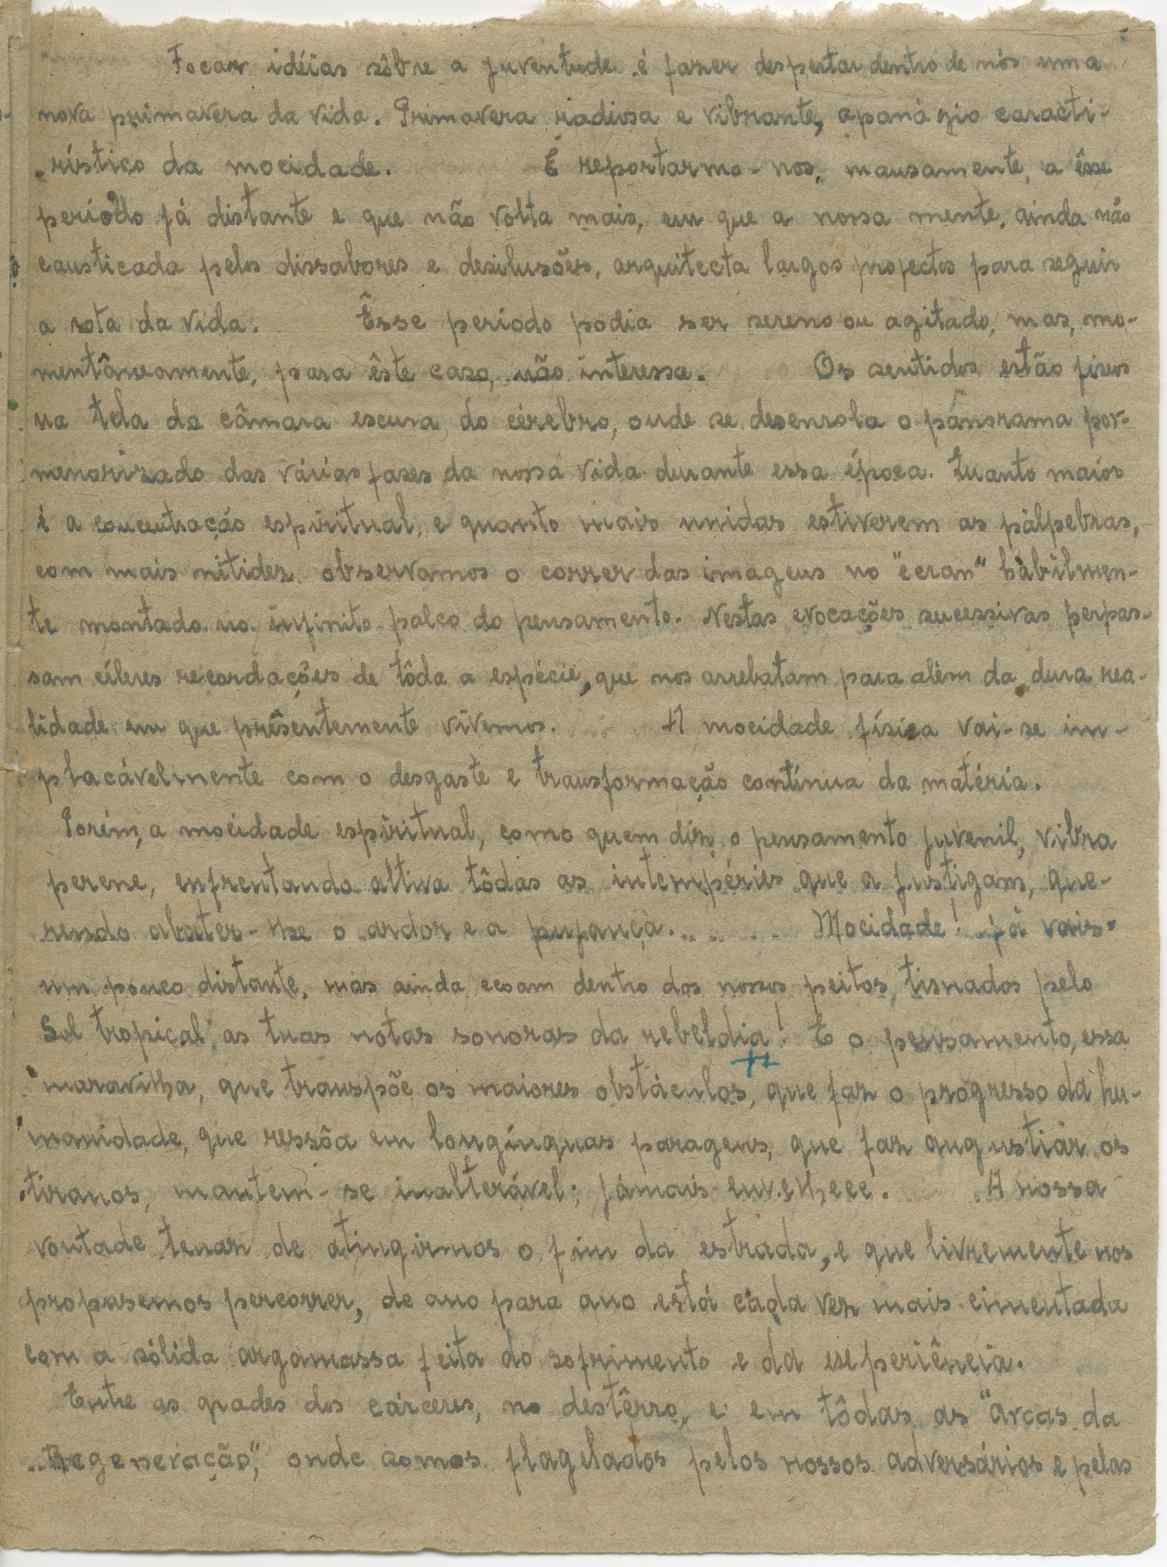 Focar idéias sôbre a juventude é fazer despertar dentro de nós uma
nova primavera da vida. Primavera radiosa e vibrante, apanágio caracti-
rístico da mocidade. É reportarmo-nos, mansamente, a êsse
período já distante e que não volta mais, em que a nossa mente, ainda não
causticada pelos dissabores e desilusões, arquitecta largos projectos para seguir
a rota da vida. Êsse período podia ser sereno ou agitado, mas, mo-
mentâneamente, para êste caso, não interessa. Os sentidos estão fixos
na tela da câmara escura do cérebro, onde se desenrola o panorama por-
menorizado das várias fases da nossa vida durante essa época. Quanto maior
é a concentração espiritual, e quanto mais unidas estiverem as pálpebras,
com mais nitidez observamos o correr das imagens no "écran" hàbilmen-
te montado no infinito palco do pensamento. Nestas evocações sucessivas perpas-
sam céleres recordações de tôda a espécie, que nos arrebatam para além da dura rea-
lidade em que presentemente vivemos. A mocidade física vai-se im-
placávelmente com o desgaste e transformação contínua da matéria.
Porém, a mocidade espiritual, como quem diz o pensamento juvenil, vibra
perene, enfrentando altiva tôdas as intempéries que a fustigam, que-
rendo abater-lhe o ardor e a pujança. . . . . Mocidade! já vais
um pouco distante, mas ainda ecoam dentro dos nossos peitos, tisnados pelo
Sol tropical, as tuas notas sonoras da rebeldia! E o pensamento, essa
maravilha, que transpõe os maiores obstáculos, que faz o progresso da hu-
manidade, que ressôa em longínquas paragens, que faz angustiar os
tiranos, mantem-se inalterável; jámais envelhece. A nossa
vontade tenaz de atingirmos o fim da estrada, e que livremente nos
propusemos percorrer, de ano para ano está cada vez mais cimentada
com a sólida argamassa feita do sofrimento e da experiência.
Entre as grades dos cárceres, no destêrro, e em tôdas as "arcas da
Regeneração", onde somos flagelados pelos nossos adversários e pelas